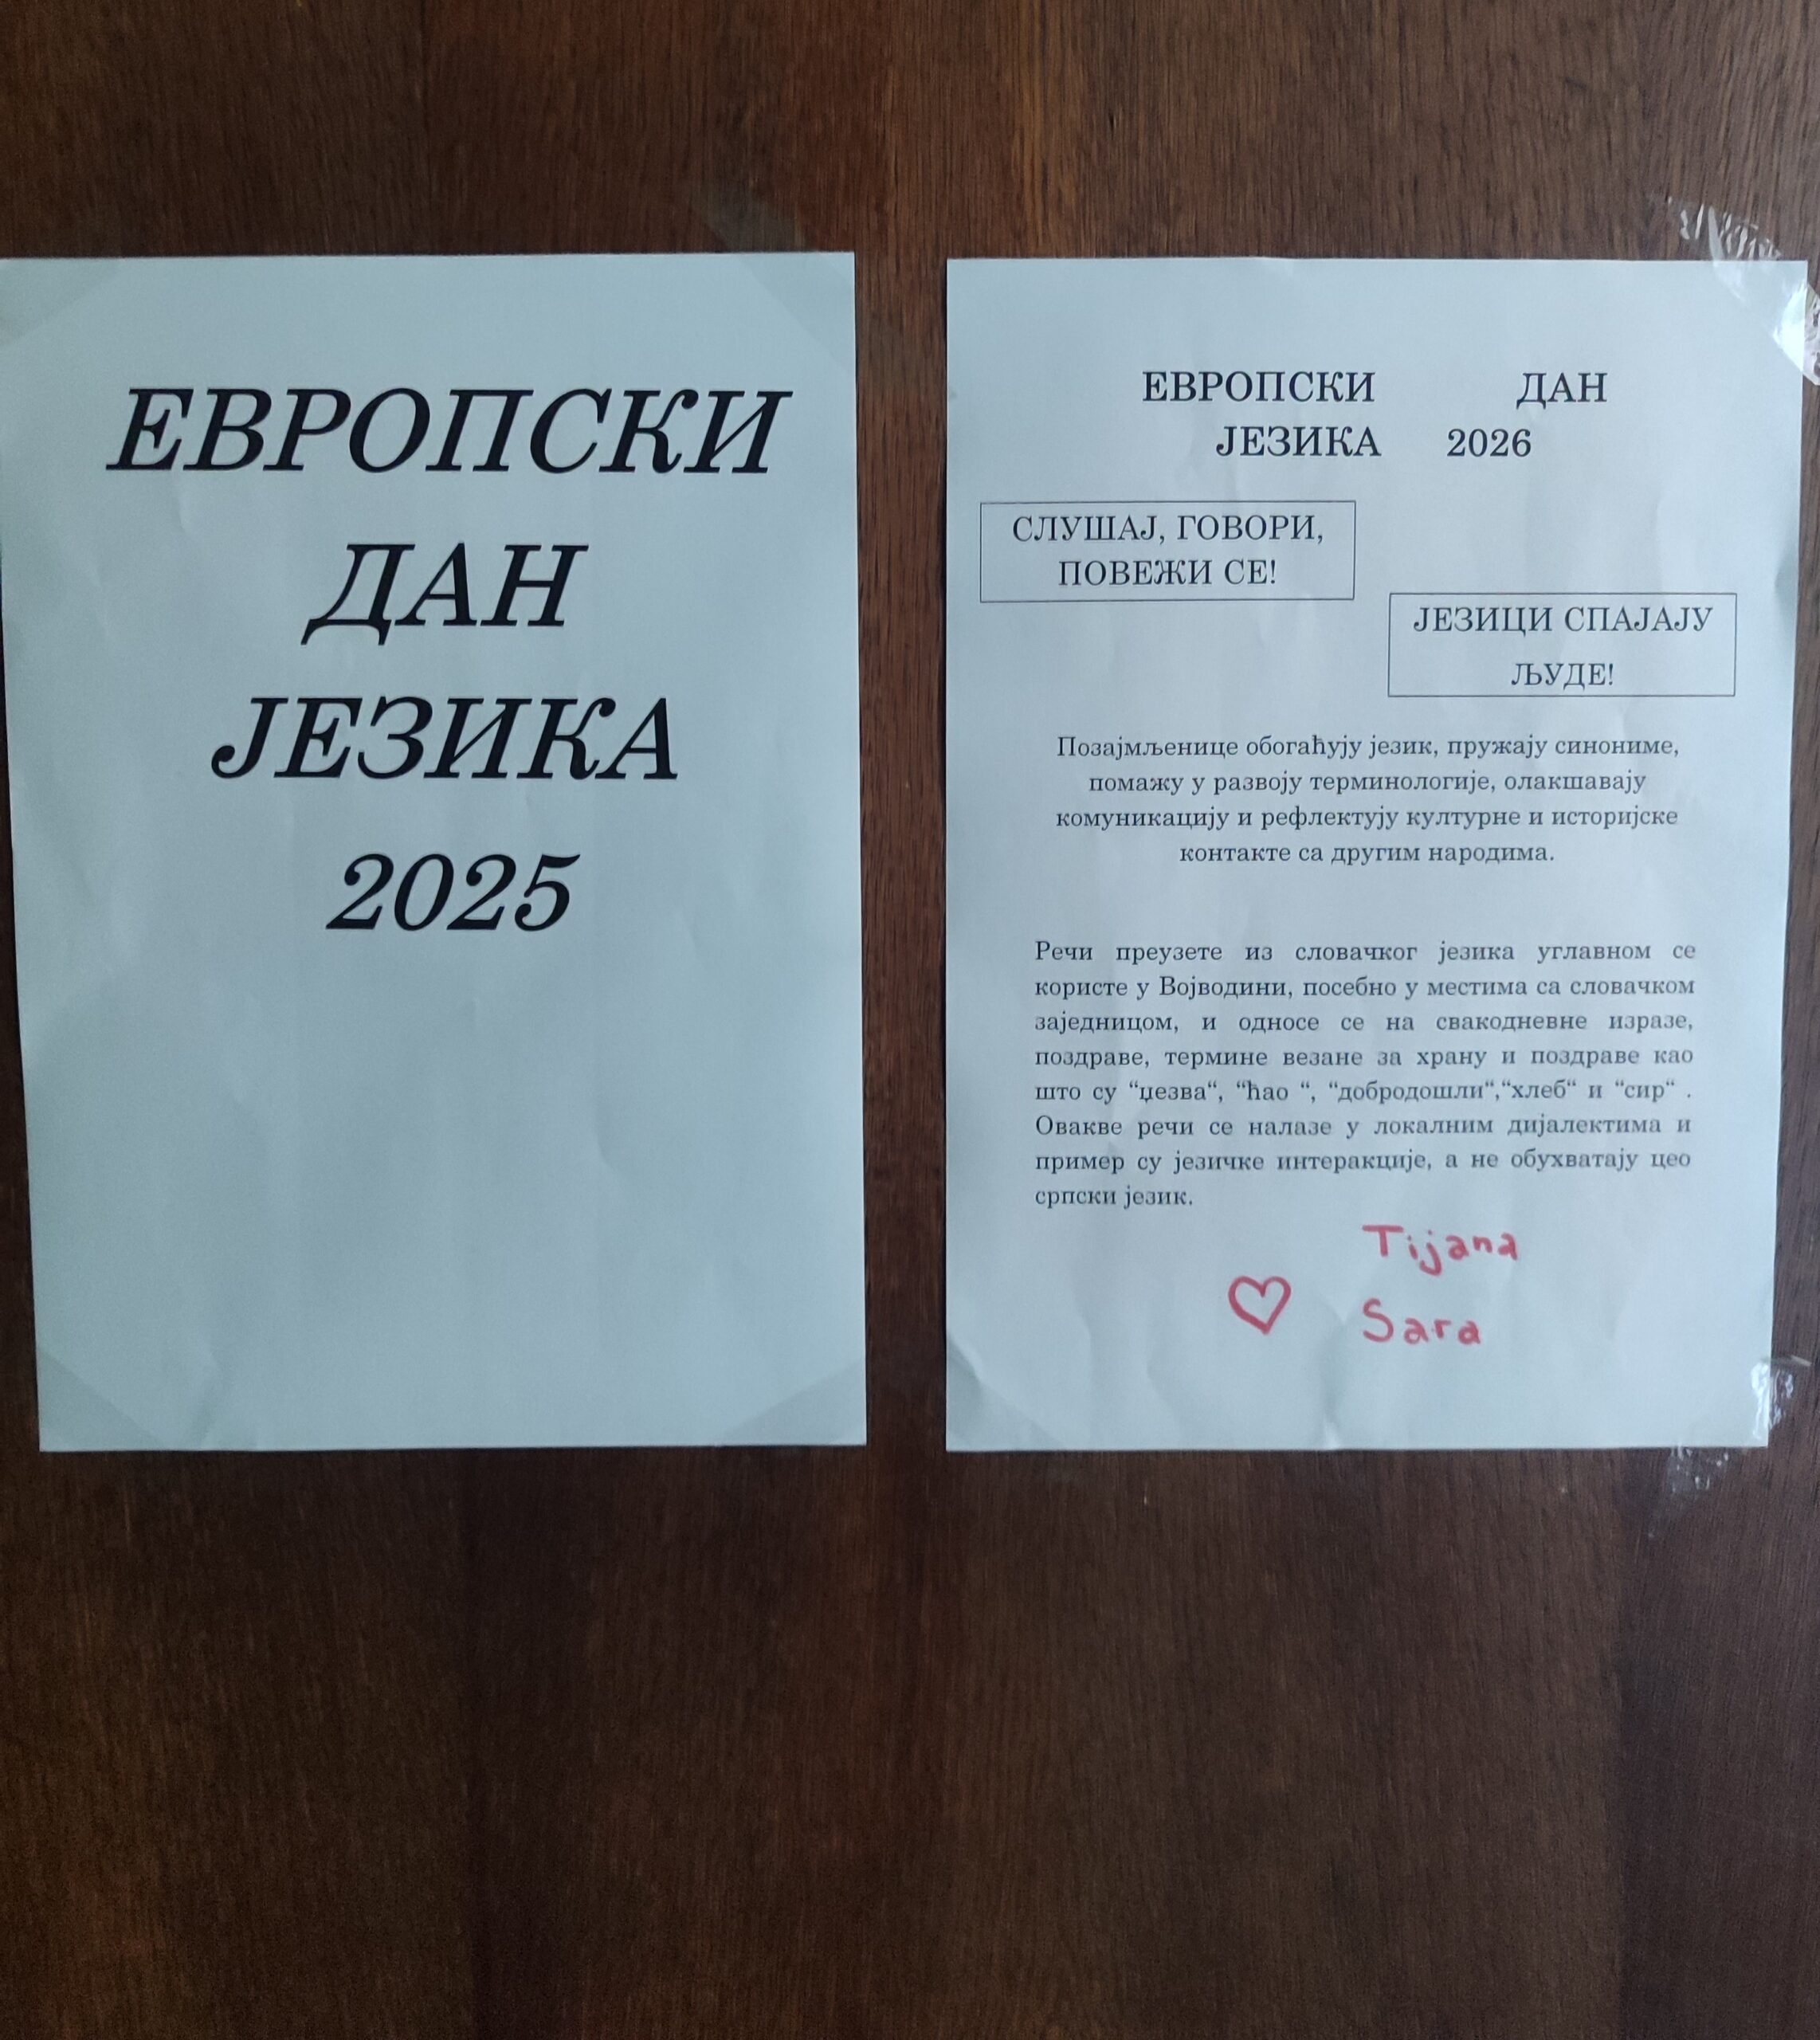 ЕВРОПСКИ
ДАН
ЈЕЗИКА
2025
ЕВРОПСКИ ДАН
ЈЕЗИКА 2026
СЛУШАЈ, ГОВОРИ,
ПОВЕЖИ СЕ!
ЈЕЗИЦИ СПАЈАЈУ
ЉУДЕ!
Позајмљенице обогаћују језик, пружају синониме,
помажу у развоју терминологије, олакшавају
комуникацију и рефлектују културне и историјске
контакте са другим народима.
Речи преузете из словачког језика углавном се
користе у Војводини, посебно у местима са словачком
заједницом, и односе се на свакодневне изразе,
поздраве, термине везане за храну и поздраве као
што су “џезва“, “ћао “, “добродошли“,“хлеб“ и “сир“ .
Овакве речи се налазе у локалним дијалектима и
пример су језичке интеракције, а не обухватају цео
српски језик.
Tijana
Sara